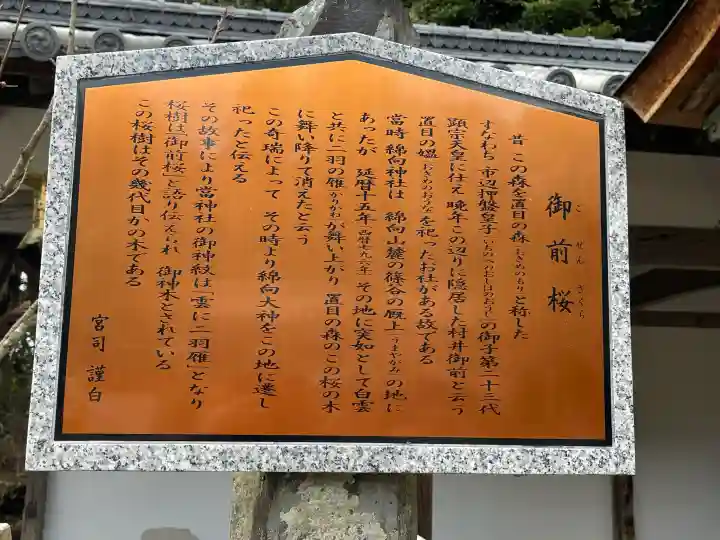 御前桜
こぜんざくら
昔 この森を置目の森(おきめのもり)と称した
すなわち 市辺押盤皇子(いちのへのおしはのおうじ)の御子第二十三代
顕宗天皇に仕え 晩年この辺りに隠居した村井御前と云う
置目の媼(おきめのおうな)を祀ったお社がある故である
當時 綿向神社は 綿向山麓の篠谷の厩上(うまやがみ)の地に
あったが 延暦十五年(西暦七九六年) その地に突如として白雲
と共に二羽の雁(かりがね)が舞い上がり 置目の森のこの桜の木
に舞い降りて消えたと云う
この奇瑞によって その時より綿向大神をこの地に遷し
祀ったと伝える
その故事により當神社の御神紋は「雲に二羽雁」となり
桜樹は「御前桜」と語り伝えられ 御神木とされている
この桜樹はその幾代目かの木である
宮司 謹白